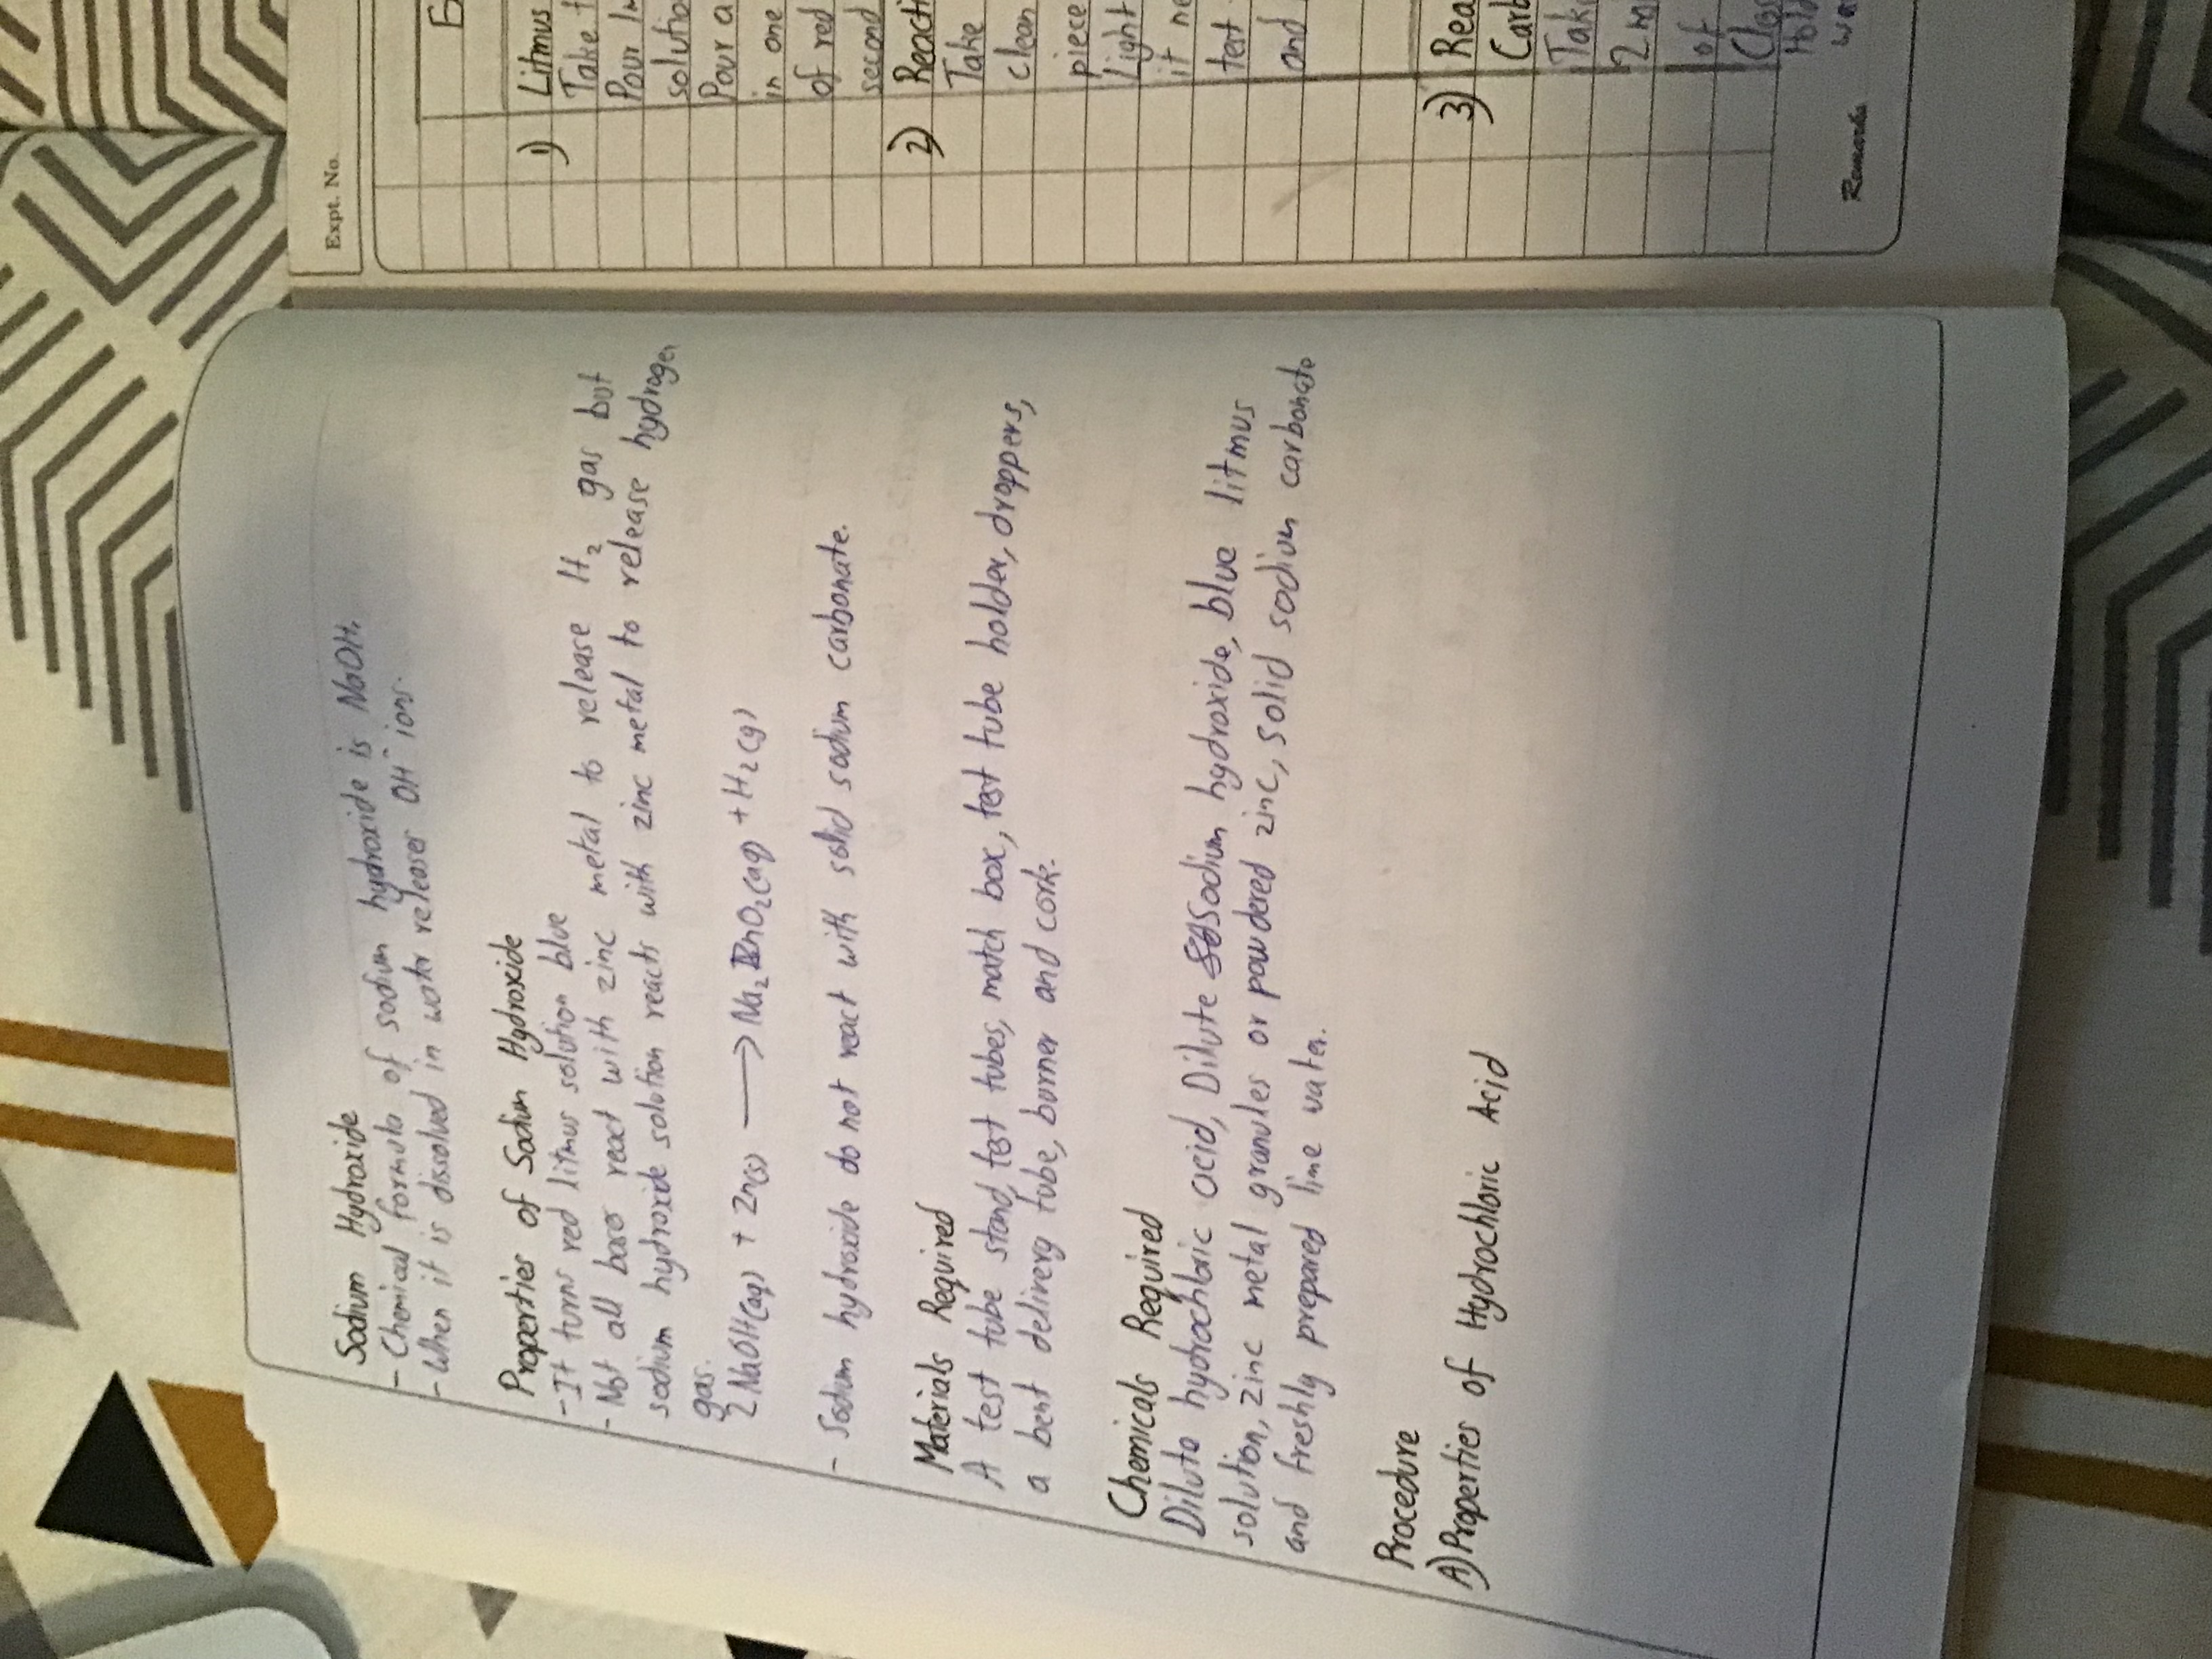 Sodium Hydroxide
- Chemical formula of sodium hydroxide is NaOH.
- When it is dissolved in water releases OH⁻ ions.
Properties of Sodium Hydroxide
- It turns red litmus solution blue
- Not all bases react with zinc metal to release H₂ gas but
sodium hydroxide solution reacts with zinc metal to release hydrogen
gas.
2NaOH(aq) + Zn(s) ⟶ Na₂ZnO₂(aq) + H₂(g)
- Sodium hydroxide do not react with solid sodium carbonate.
Materials Required
A test tube stand, test tubes, match box, test tube holder, droppers,
a bent delivery tube, burner and cork.
Chemicals Required
Dilute hydrochloric acid, Dilute Sodium hydroxide, blue litmus
solution, zinc metal granules or powdered zinc, solid sodium carbonate
and freshly prepared lime water.
Procedure
A) Properties of Hydrochloric Acid
Expt. No.
E
1) Litmus
Take t
Pour 1m
solutio
Pour a
in one
of red
second
2) Reacti
Take
clean
piece
Light
it ne
test
and
3) Rea
Carb
Take
2 m
of
Clos
Hold
wa
Remarks